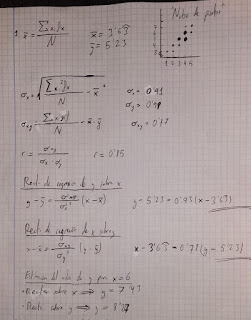 1 x̄ = Σxᵢ/N x̄ = 3'63
ȳ = 5'23
Nube de puntos
1 2 3 4 5 6
σx = √(Σx²/N - x̄²) σx = 0'91
σy =
σxy = Σxᵢyᵢ/N - x̄·ȳ σxy =
r = σxy/(σx·σy) r =
Recta de regresión de y sobre x
y - ȳ = σxy/σx² (x - x̄) y - 5'23 = 0'93(x - 3'63)
Recta de regresión de x sobre y
x - x̄ = σxy/σy² (y - ȳ) x - 3'63 = 0'78(y - 5'23)
Estimación del valor de y para x = 6
- Recta sobre x ⟹ y = 7'43
- Recta sobre y ⟹ y =